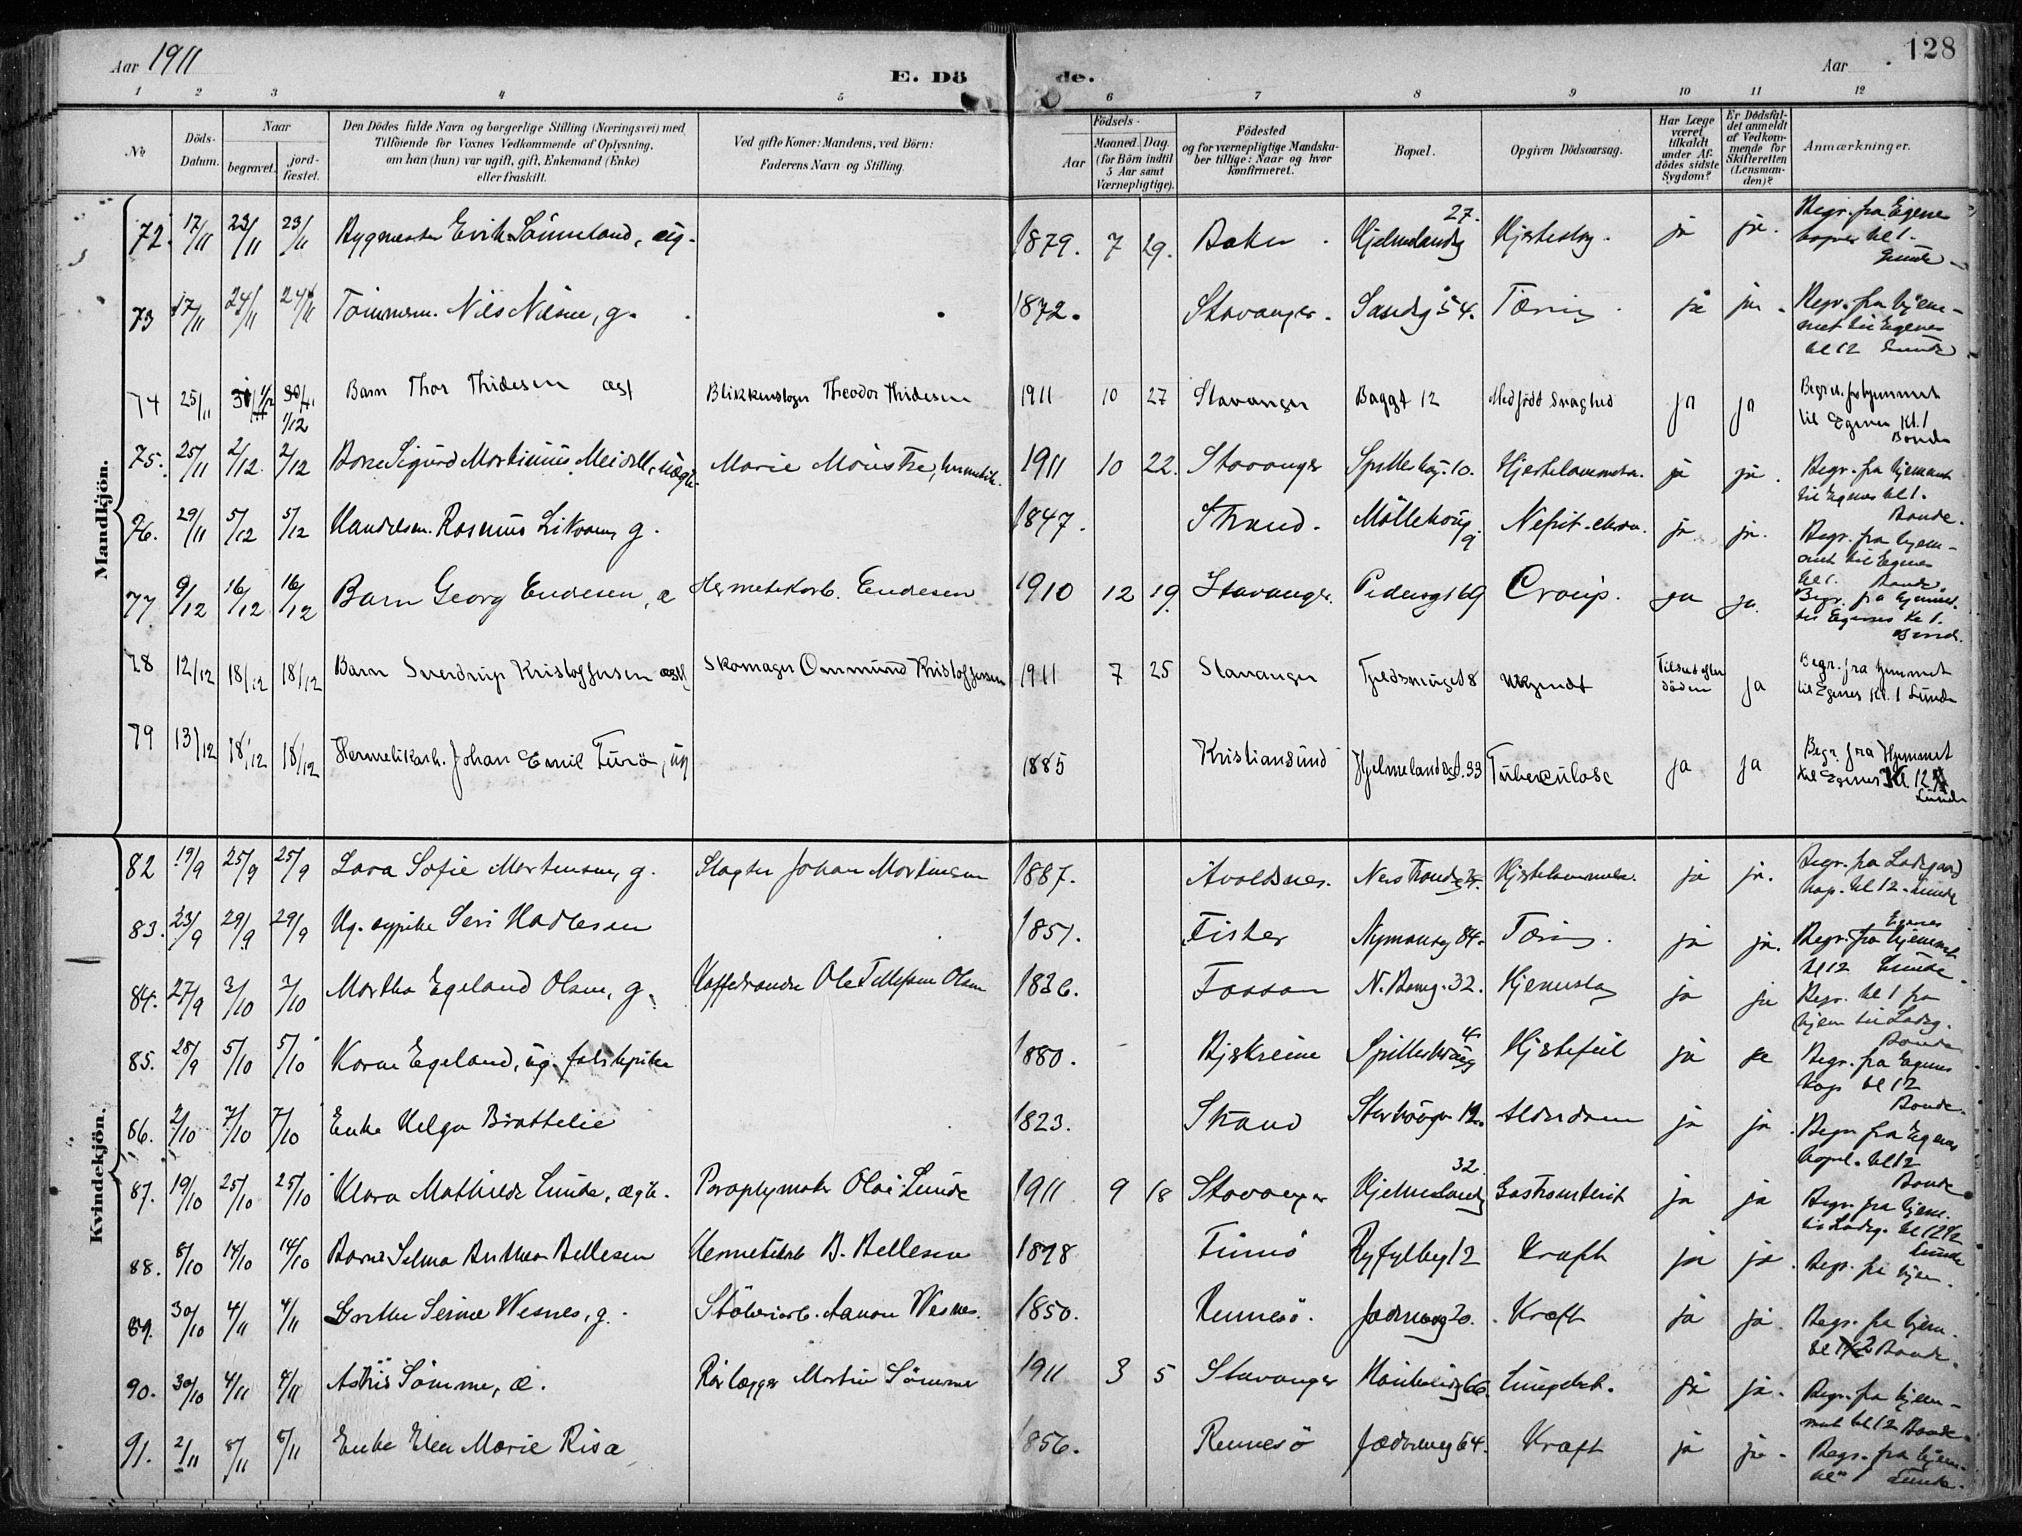 Aar 1911
E. Dö de.
Aar 128
1 2 3 4 5 6 7 8 9 10 11 12
No
Döds-Datum.
Naar begravet. jord-fæstet.
Den Dödes fulde Navn og borgerlige Stilling (Næringsvei) med
Tilföiende for Voxnes Vedkommende af Oplysning,
om han (hun) var ugift, gift, Enkemand (Enke)
eller fraskilt.
Ved gifte Koner: Mandens, ved Börn:
Faderens Navn og Stilling.
Födsels-
Aar Maaned. Dag.
(for Börn indtil 5 Aar samt Værnepligtige).
Födested
og for værnepligtige Mandska-
ber tillige: Naar og hvor
konfirmeret.
Bopæl.
Opgiven Dödsaarsag.
Har Læge været tilkaldt under Af-dödes sidste Sygdom?
Er Dödsfal-det anmeldt af Vedkom-mende for Skifteretten (Lensman-den)?
Anmærkninger.
Mandkjön.
72. 17/11 23/11 23/11 Bygmester Erik Sönneland, ug. 1879. 7 29. Bakn. Hjelmelandsg 27. Hjerteslag. ja ja. Begr. fra Egenes kapel kl 1. Lunde
73 17/11 24/11 24/11 Tömmerm. Nils Nilsen, g. 1872. Stavanger. Sandsg 54. Tæring ja ja. Begr. fra hjemmet til Egenes kl 12 Lunde
74 25/11 1/12 1/12 Barn Thor Thidesen ægt Blikkenslager Theodor Thidesen 1911 10 27 Stavanger Baggt 12 Medfödt svaghed ja ja Begr. fra hjemmet til Egenes Kl. 1 Bonde
75. 25/11 2/12 2/12 Barn Sigurd Martinius Meidell, uægt. Marie Mönstre, 1911 10 22. Stavanger 10. Hjertelammelse. ja ja. Begr. fra hjemmet til Egenes kl 1. Bonde.
76. 29/11 5/12 5/12 Handelsm. Rasmus g. 1847. Strand. Möllehoug 9 Nefrit. chron. ja ja. Begr. fra hjemmet til Egenes kl 1. Bonde.
77. 9/12 16/12 16/12 Barn Georg Endresen, æ Hermetikarb. Endresen 1910 12 19. Stavanger. Pedersgt 69 Croup. ja ja. Begr. fra hjemmet til Egenes Kl 1. Bonde.
78 12/12 18/12 18/12 Barn Sverdrup Kristoffersen ægtf Skomager Ommund Kristoffersen 1911 7 25 Stavanger 8 ukjendt Tilkaldt efter döden ja Begr. fra hjemmet til Egenes Kl. 1 Lunde
79 13/12 18/12 18/12 Hermetikarb. Johan Emil Turö, ug 1885 Kristiansund Hjelmelandsgt. 33 Tuberculose ja ja Begr. fra Hjemmet til Egenes Kl 12 Lunde
Kvindekjön.
82 19/9 25/9 25/9 Lava Sofie Mortensen, g. Slagter Johan Mortensen 1887. Avaldsnes. Hjertelammelse. ja ja. Begr. fra Ladegaard kap. kl 12. Lunde
83. 23/9 29/9 29/9 Ug. sypike Seri Hadlesen 1851. Fister Nymansg 84. Tæring. ja ja. Begr. fra Egenes kl 12 Lunde.
84. 27/9 3/10 3/10 Martha Egeland Olsen, g. Kaffebrænder Ole Tellefsen Olsen 1836. Fossan 32. Hjerneslag ja ja Begr. kl 1 fra hjem til Ladeg. Bonde
85. 28/9 5/10 5/10 Karen Egeland, ug. fabrikpike 1880. Bjerkreim Hjertefeil ja ja Begr. fra Egenes kap kl 12 Bonde.
86. 2/10 7/10 7/10 Enke Helga Brattelie 1823. Strand 12. Alderdom ja ja. Begr. fra Egenes kapel. kl 12 Bonde
87. 19/10 25/10 25/10 Klara Mathilde Lunde, ægte. Paraplymaker Olai Lunde 1911 9 18 Stavanger Hjelmelandsg 32. Gastroenterit ja ja Begr. fra hjem. til Ladeg. kl 12 1/2 Lunde
88. 8/10 14/10 14/10 Selma Bellesen Hermetikarb B. Bellesen 1878 Finnö Ryfylkeg 12 Kræft ja ja. Begr. fra hjem.
89. 30/10 4/11 4/11 Grethe Serine Wesnes, g. Stöberiarb. Aanon Wesnes. 1850. Rennesö. Jæderveg 20. Kræft ja ja. Begr. fra hjem. kl 12 Bonde.
90. 30/10 4/11 4/11 Astrid Sömme, æ. Rörlægger Martin Sömme 1911 3 5 Stavanger 66. Lungebet. ja ja. Begr. fra hjemmet kl 12 Bonde.
91. 2/11 8/11 8/11 Enke Elen Marie Risa 1856. Rennesö Jæderveg 64. Kræft ja ja. Begr. fra hjem. kl 1 Lunde.